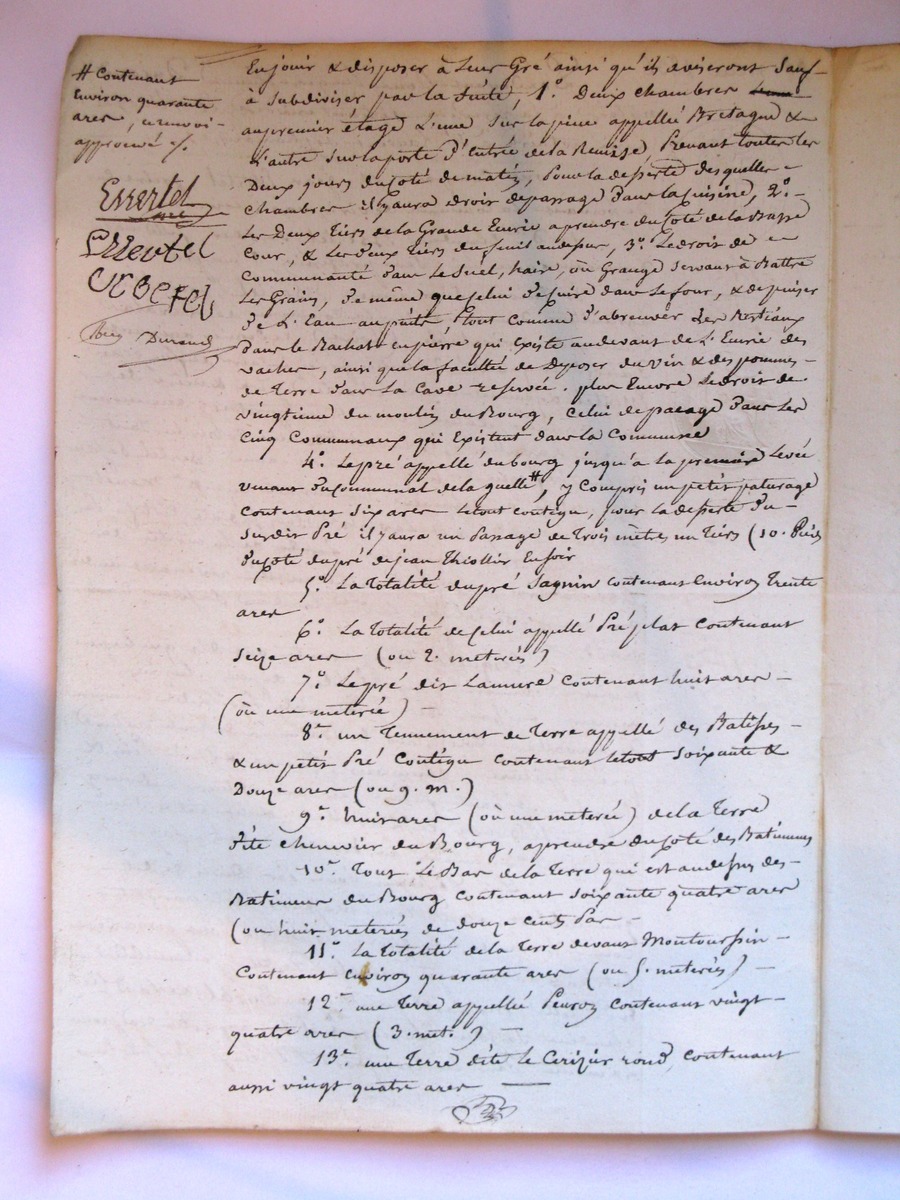 # Contenant
Environ quarante
ares, ce renvoi
approuvé ./.
Essertel
Durand
En jouir & disposer à Leur Gré ainsi qu'ils aviseront Sauf
à Subdiviser par la Suite, 1° Deux chambres
au premier étage L'une Sur la pièce appellée Bretagne &
L'autre Sur la porte D'Entrée de la Remise Prenant toutes les
Deux jours du Coté de matin, Pour la desserte desquelles
chambres il y aura droit de passage Dans la Cuisine, 2°
Les Deux tiers de la Grande Ecurie a prendre du Coté de la Basse
Cour, & Les Deux tiers du fenil au dessus, 3° Le droit de
Communauté Dans Le Suel, haire, ou Grange Servant à Battre
Les Grains, De même que Celui De Cuire dans Le four, & de puiser
De L'Eau au puits, tout comme D'abreuver Les Bestiaux
Dans le Bachat en pierre qui Existe au devant de L'Ecurie des
vaches, ainsi que la faculté de Deposer du vin & des pommes
de Terre Dans La Cave reservée. plus Encore Le droit de
vingtieme du moulin du Bourg, Celui de pacage Dans Les
Cinq Communaux qui Existent dans la Commune
4° Le pré appellé du bourg jusqu'à la premiere Levée
venant du Communal de la #, y Compris un petit paturage
Contenant Six ares Le tout contigu, pour la desserte du
Susdit Pré il y aura un Passage de Trois mètres un Tiers (10. Pieds
Du Coté du pré de jean Thiollier En Soir
5° La Totalité du pré Sagnin contenant Environ Trente
ares
6° La Totalité de Celui appellé Pré plat Contenant
Seize ares (ou 2. meterées)
7° Le pré dit contenant huit ares
(ou une meterée)
8° un Tennement de Terre appellé des
& un petit Pré Contigu contenant Letout Soixante &
Douze ares (ou 9. m.)
9° huit ares (ou une meterée) de la Terre
Dite chenevier du Bourg, a prendre du Coté des Batimens
10° Tout Le Bas de la Terre qui est au dessus des
Batimens du Bourg Contenant Soixante quatre ares
(ou huit meterées de douze Cents Pas
11° La Totalité de la Terre devant
Contenant Environ quarante ares (ou 5. meterées)
12° une Terre appellée contenant vingt
quatre ares (3. met.)
13° une Terre dite le Cerizier rond, contenant
aussi vingt quatre ares